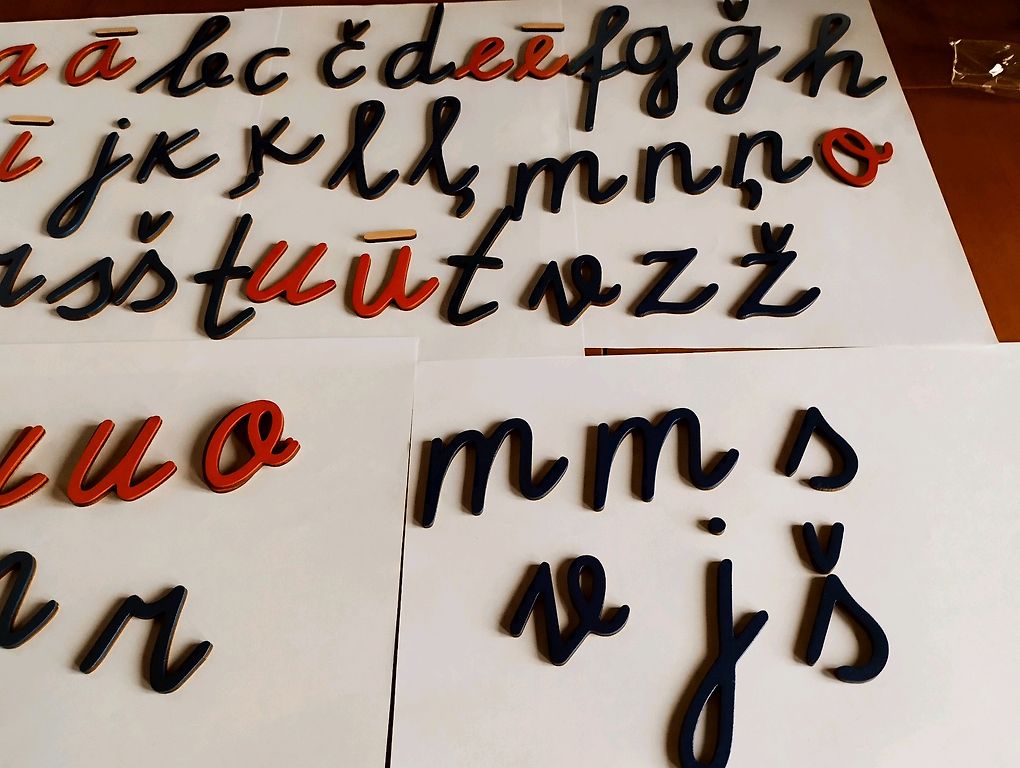 a ā b c č d e ē f g ģ h
ī j k ķ l ļ m n ņ o
r s š t u ū t v z ž
u u o
r r
m m s
v j š